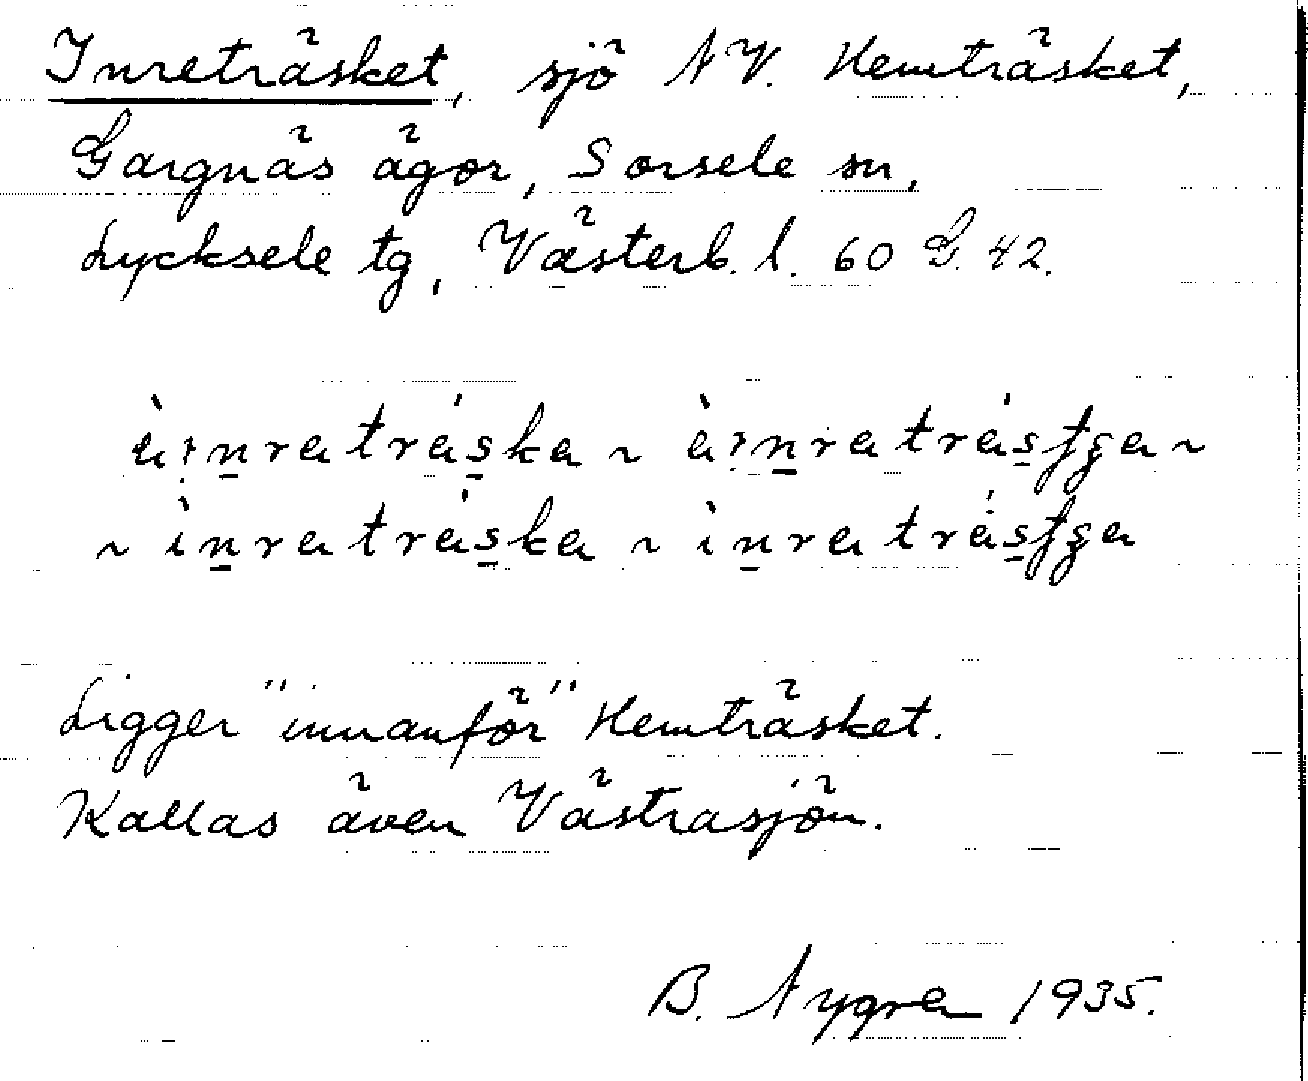 Inreträsket, sjö NV. Hemträsket,
Gargnäs ägor, Sorsele sn,
Lycksele tg, Västerb. l. 60 G. 42.
Ligger "innanför" Hemträsket.
Kallas även Västrasjön.
B. Nygren 1935.